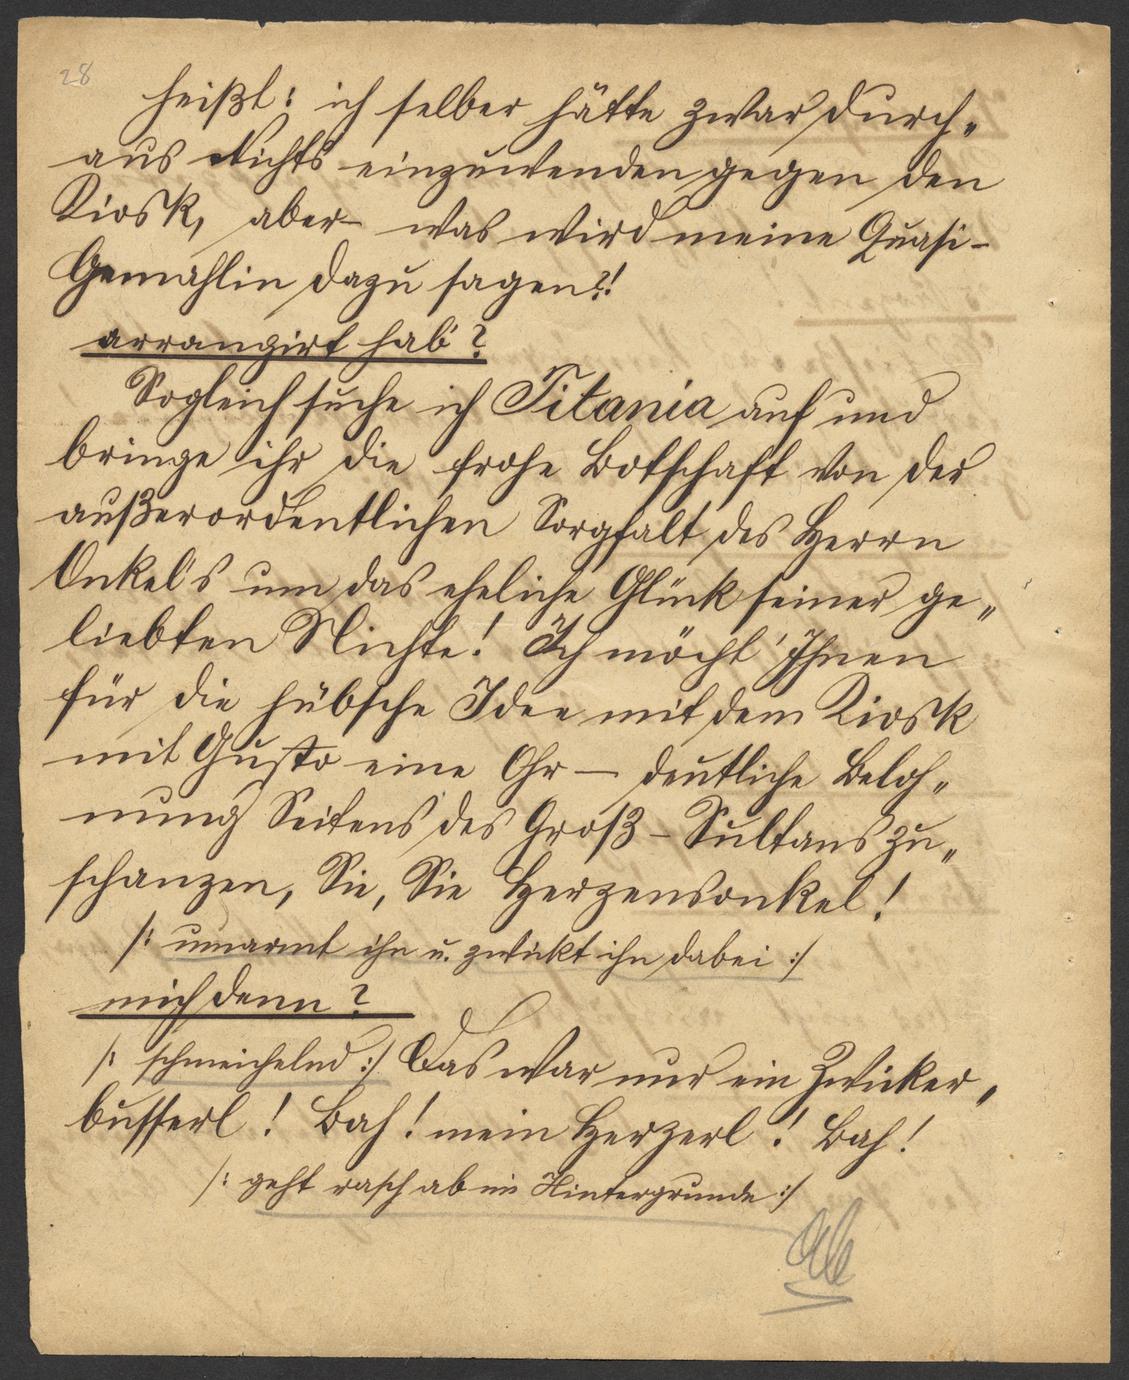 28
heißt: ich selber hätte zwar durch„
aus Nichts einzuwenden gegen den
Kiosk, aber – was wird meine Quasi-
Gemahlin dazu sagen?!
arrangirt hab'?
Sogleich suche ich Titania auf und
bringe ihr die frohe Botschaft von der
außerordentlichen Sorgfalt des Herrn
Onkel's um das eheliche Glück seiner ge„
liebten Nichte! Ich möcht' Ihnen
für die hübsche Idee mit dem Kiosk
mit Gusto eine Ohr – deutliche Beloh„
nung Seitens des Groß-Sultans zu„
schanzen, Sie, Sie Herzensonkel!
/: umarmt ihn u. zwickt ihn dabei :/
mich denn?
/: schmeichelnd :/ Das war nur ein Zwicker„
busserl! Bah! mein Herzerl! Bah!
/: geht rasch ab im Hintergrunde :/
Ab